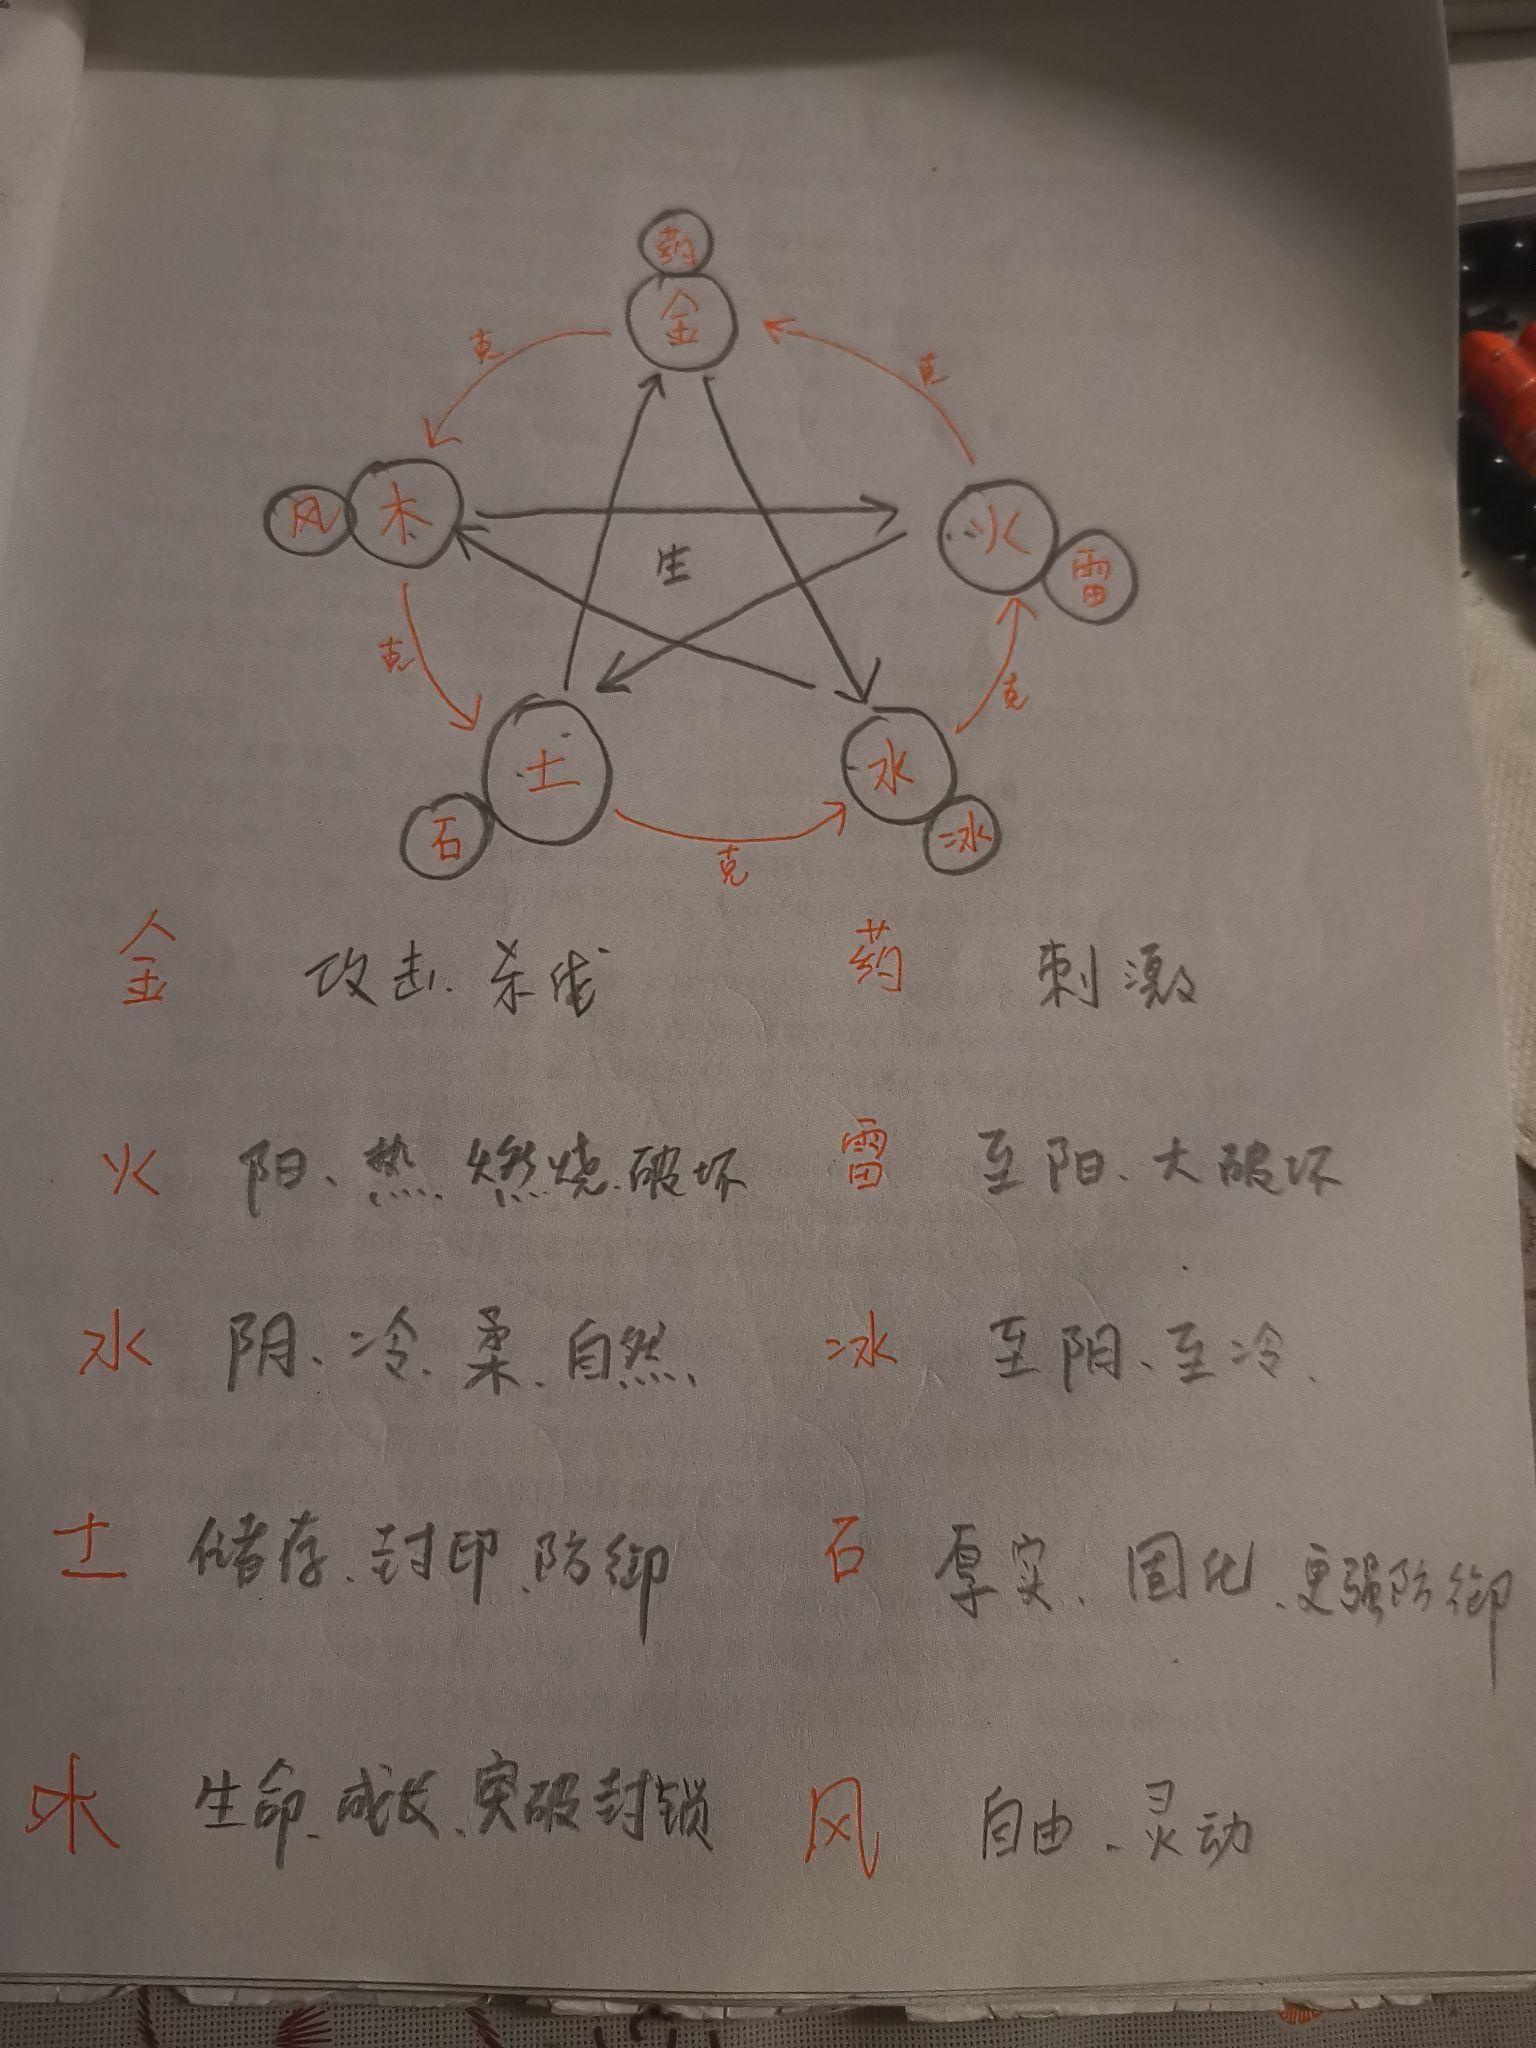 药
金
克
克
风
木
火
雷
生
克
克
土
水
石
冰
克
金 攻击、杀伐 药 刺激
火 阳、热、燃烧、破坏 雷 至阳、大破坏
水 阴、冷、柔、自然、 冰 至阳、至冷、
土 储存、封印、防御 石 厚实、固化、更强防御
木 生命、成长、突破封锁 风 自由、灵动